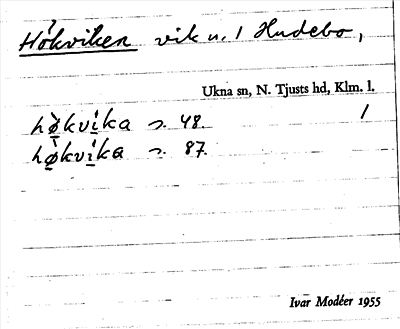 Hökviken vik u. 1 Hudebo,
Ukna sn, N. Tjusts hd, Klm. l.
hø̀kvi̱ka s. 48. 1
hø̀kvi̱ka s. 87.
Ivar Modéer 1955